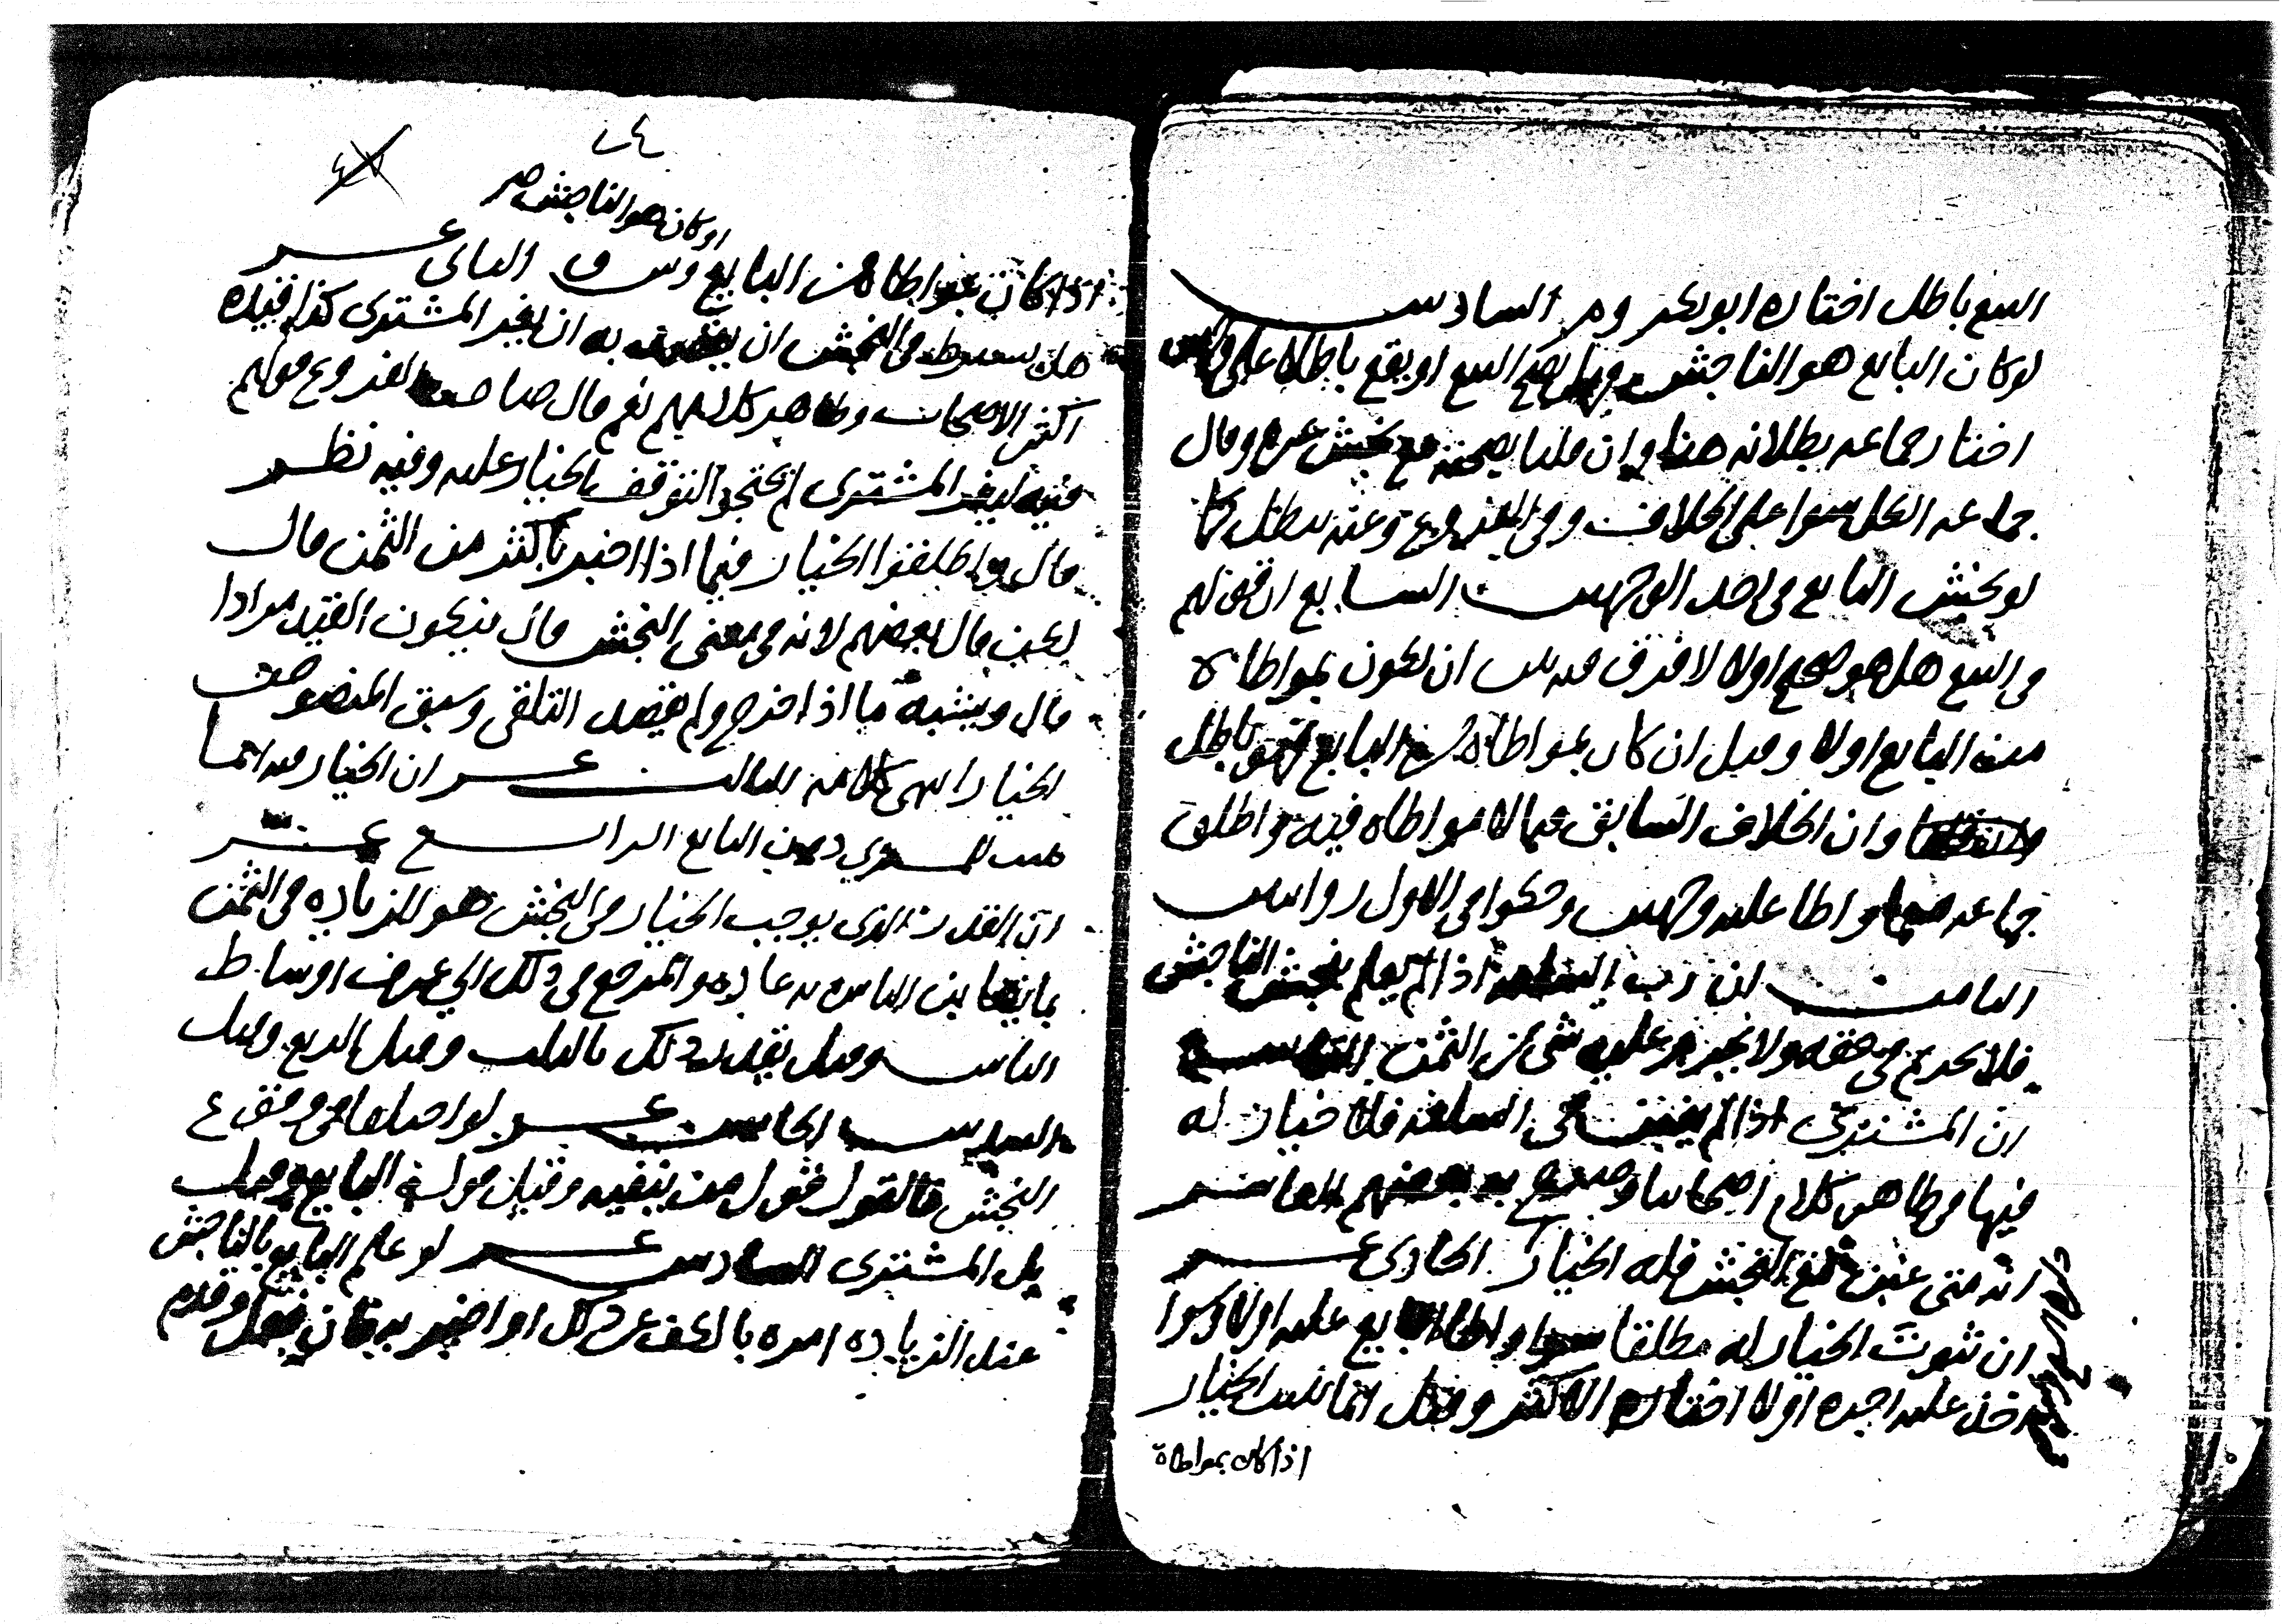 البيع باطل اختاره ابو بكر وهو السادس
لو كان البايع هو الناجش وهل يصح البيع او يقع باطلا على
اختار جماعه بطلانه هنا وان قلنا بصحته مع نجش غيره وقال
جماعه الكل سوا على الخلاف وفي الفروع وعنه يبطل كما
لو نجش البايع في احد الوجهين السابع ان قولهم
في البيع هل هو صحيح اولا لا فرق فيه بين ان يكون بمواطاة
من البايع اولا وقيل ان كان بمواطاة من البايع فهو باطل
وان الخلاف السابق فيما لا مواطاه فيه واطلق
جماعه فيما واطا عليه وجهين وحكوا في الاول روايتين
الثامن ان رب السلعه اذا لم يعلم بنجش الناجش
فلا تحريم في حقه ولا يحرم عليه شي من الثمن التاسع
ان المشتري اذا لم يغبن في السلعه فلا خيار له
فيها في ظاهر كلام اصحابنا وصرح به بعضهم العاشر
انه متى غبن مع النجش فله الخيار الحادي عشر
ان ثبوت الخيار له مطلقا سوا واطا البايع عليه اولا وسوا
اخذ عليه اجره اولا اختاره الاكثر وقيل انما يثبت الخيار
اذا كان بمواطاة
٤٦
او كان هو الناجش صح
اذا كان بمواطاة من البايع وسبق الثاني عشر
هل يشترط في النجش ان يقصد به ان يغر المشتري كذا قيده
اكثر الاصحاب وظاهر كلامهم نعم قال صاحب الفروع قولهم
فيه ليغر المشتري لم يحتجوا لتوقف الخيار عليه وفيه نظر
قال واطلقوا الخيار فيما اذا اخبر باكثر من الثمن قال
لكن قال بعضهم لانه في معنى النجش قال فيكون القيد مرادا
قال ويشبه ما اذا خرج ولم يقصد التلقي وسبق المنصوص
الخيار انتهى كلامه الثالث عشر ان الخيار فيه انما
يثبت للمشتري دون البايع الرابع عشر
ان القدر الذي يوجب الخيار في النجش هو الزياده في الثمن
بما يتغابن الناس به عاده والمرجع في ذلك الى عرف اوساط
الناس وقيل يقدر ذلك بالثلث وقيل الربع وقيل
السدس الخامس عشر لو اختلفا في وقوع
النجش فالقول قول من ينفيه وقيل قول البايع وقيل
بل المشتري السادس عشر لو علم البايع بالناجش
عند الزياده امره بالكف عن ذلك او اخبر به فان فعل وقدم